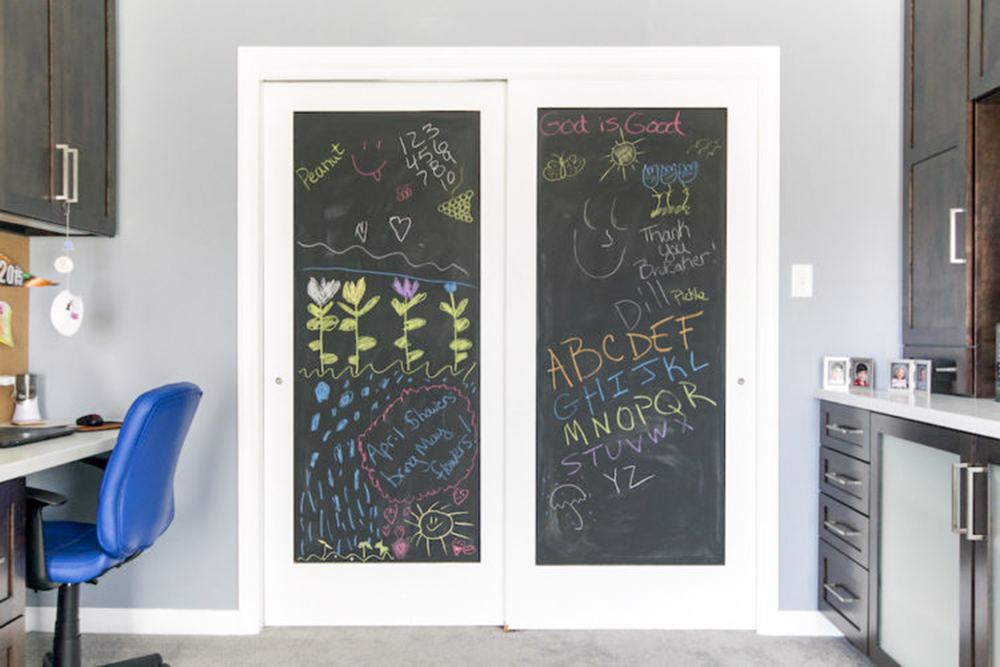 Peanut
1 2 3
4 5 6
7 8 9
10
April Showers
bring May
flowers
God is Good
Thank
you
Brubaker!
Dill Pickle
ABCDEF
GHIJKL
MNOPQR
STUVWX
YZ
2015